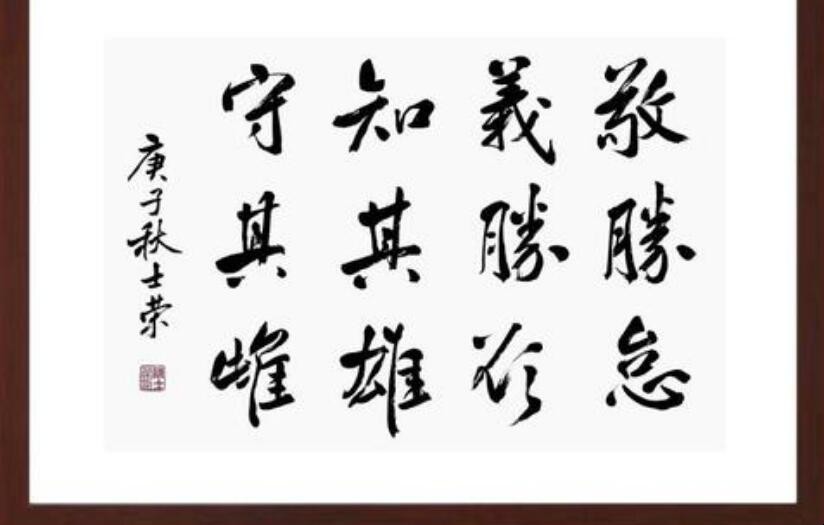 敬勝怠
義勝欲
知其雄
守其雌
庚子秋士荣